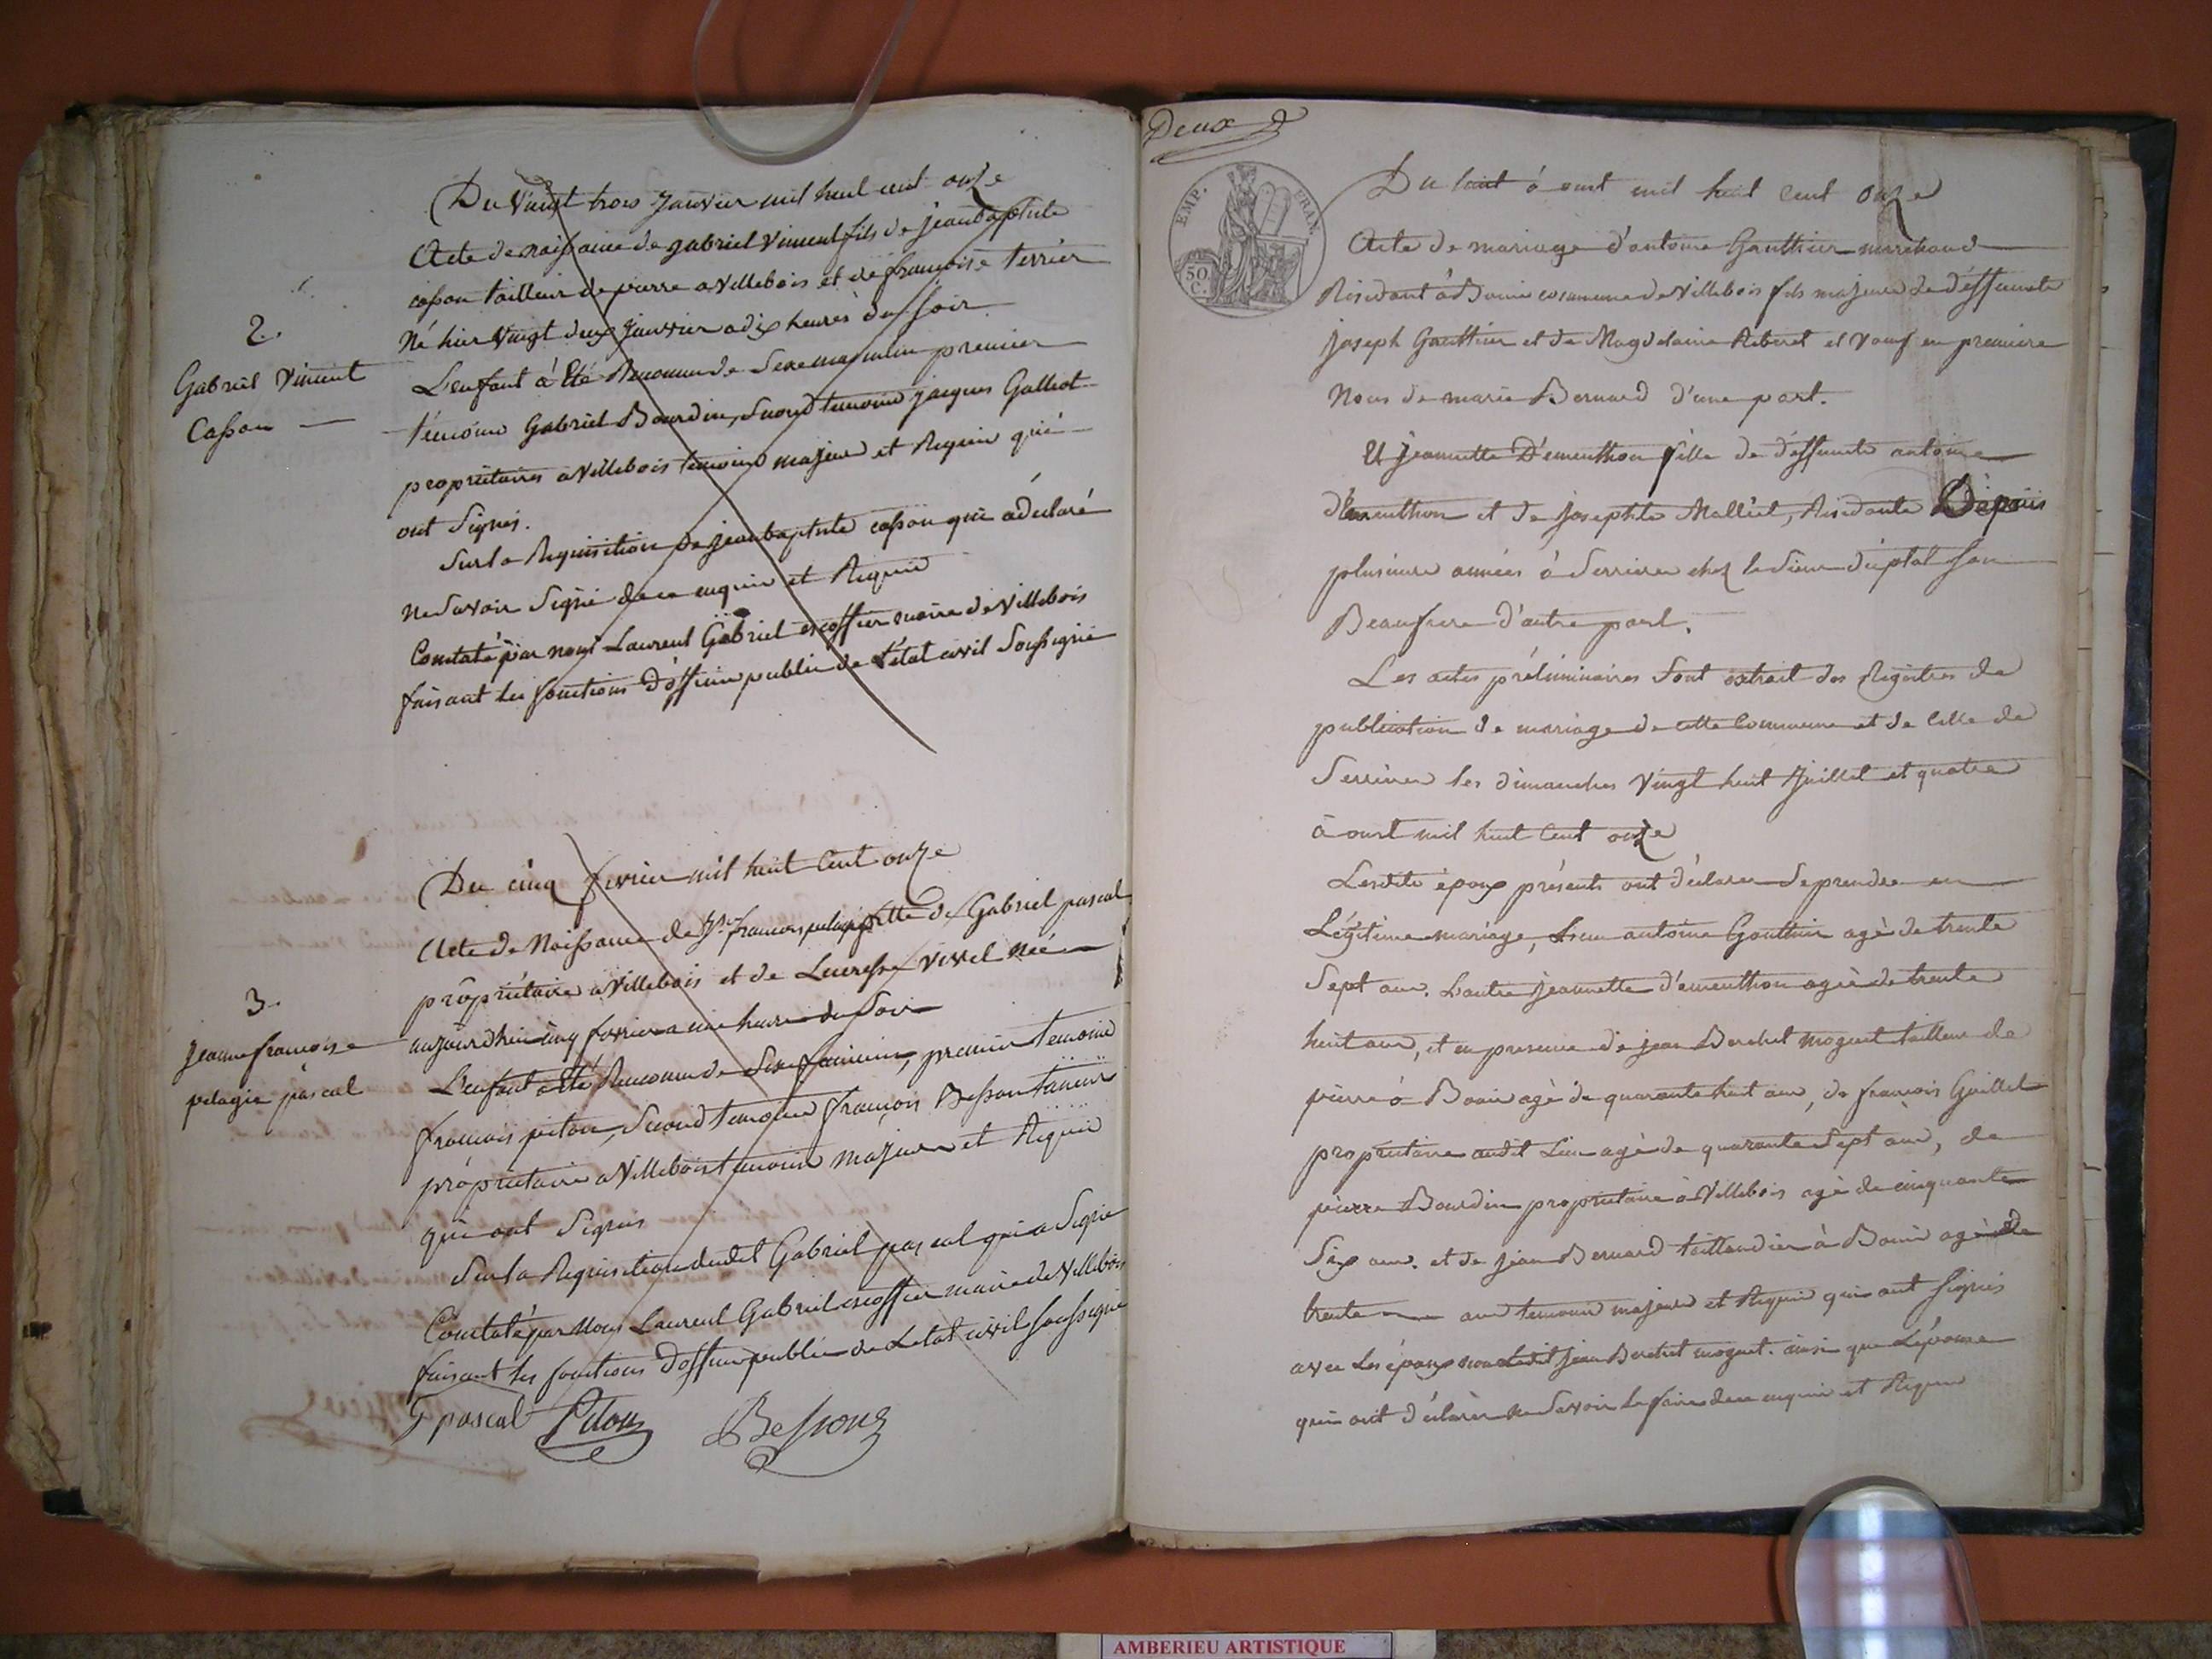 Du vingt trois janvier mil huit cent onze
Acte de naissance de gabriel vincent fils de jean baptiste
casson tailleur de pierre a villebois et de françoise terrier
Né hier vingt deux janvier a dix heures du soir
2.
Gabriel vincent
Casson
L'enfant à Eté Reconnu de Sexe masculin premier
témoins Gabriel Bourdin, Second temoins jacques Galliot
proprietaires a villebois temoins majeurs et Requis qui
ont Signés.
Sur la Requisition de jean baptiste casson qui à déclaré
ne Savoir Signé de ce enquis et Requis
Constaté par nous Laurent Gabriel escoffier maire de villebois
faisant les fonctions d'officier public de l'état civil Soussigné
Du cinq fevrier mil huit Cent onze
Acte de Naissance de françoise pelagie fille de Gabriel pascal
propriétaire a villebois et de Lucresse vivel née
aujourdhui cinq fevrier a une heure du Soir
3.
jeanne françoise
pelagie pascal
L'enfant a Eté Reconnu de Sexe féminin, premier temoins
françois pitou, Second temoins françois Besson taneur
propriétaire a Villebois temoins majeurs et Requis
qui ont Signés
Sur la Requisition dudit Gabriel pascal qui a Signé
Constaté par Nous Laurent Gabriel escoffier maire de Villebois
faisant les fonctions d'officier public de Letat civil Soussigné
G pascal Pitou Besson
Deux
EMP. FRAN.
50 C.
Du huit à oust mil huit cent onze
Acte de mariage d'antoine Gauthier marchand
Résidant à Bouis commune de Villebois fils majeur de deffuncts
joseph Gauthier et de Magdelaine Reberet et Vauf en premiere
Noces de marie Bernard d'une part.
Et jeannette D'ementhon fille de deffuncts antoine
d'Ementhon et de josephte Malliet, Residante Dépuis
plusieurs années à Serrieres chez le Sieur son
Beaufrere d'autre part.
Les actes préliminaires Sont extrait des Registres de
publication de mariage de cette Commune et de Celle de
Serrieres les dimanches vingt huit Juillet et quatre
à oust mil huit Cent onze
Lesdits époux présents ont déclarer Se prendre en
Légitime mariage, L'un antoine Gauthier agé de trente
Sept ans. L'autre jeannette d'ementhon agée de trente
huit ans, et en presence de jean Berchet moguet tailleur de
pierre à Bouis agé de quarante huit ans, de françois Guillet
propriétaire audit Lieu agé de quarante Sept ans, de
pierre Bourdin propriétaire à Villebois agé de cinquante
Six ans. et de jean Bernard taillandier à Bouis agé de
trente ans temoins majeurs et Requis qui ont Signés
avec Les époux non Ledit jean Berchet moguet. ainsi que L'épouse
qui ont déclarér ne Savoir Le faire de ce enquis et Requis
AMBERIEU ARTISTIQUE